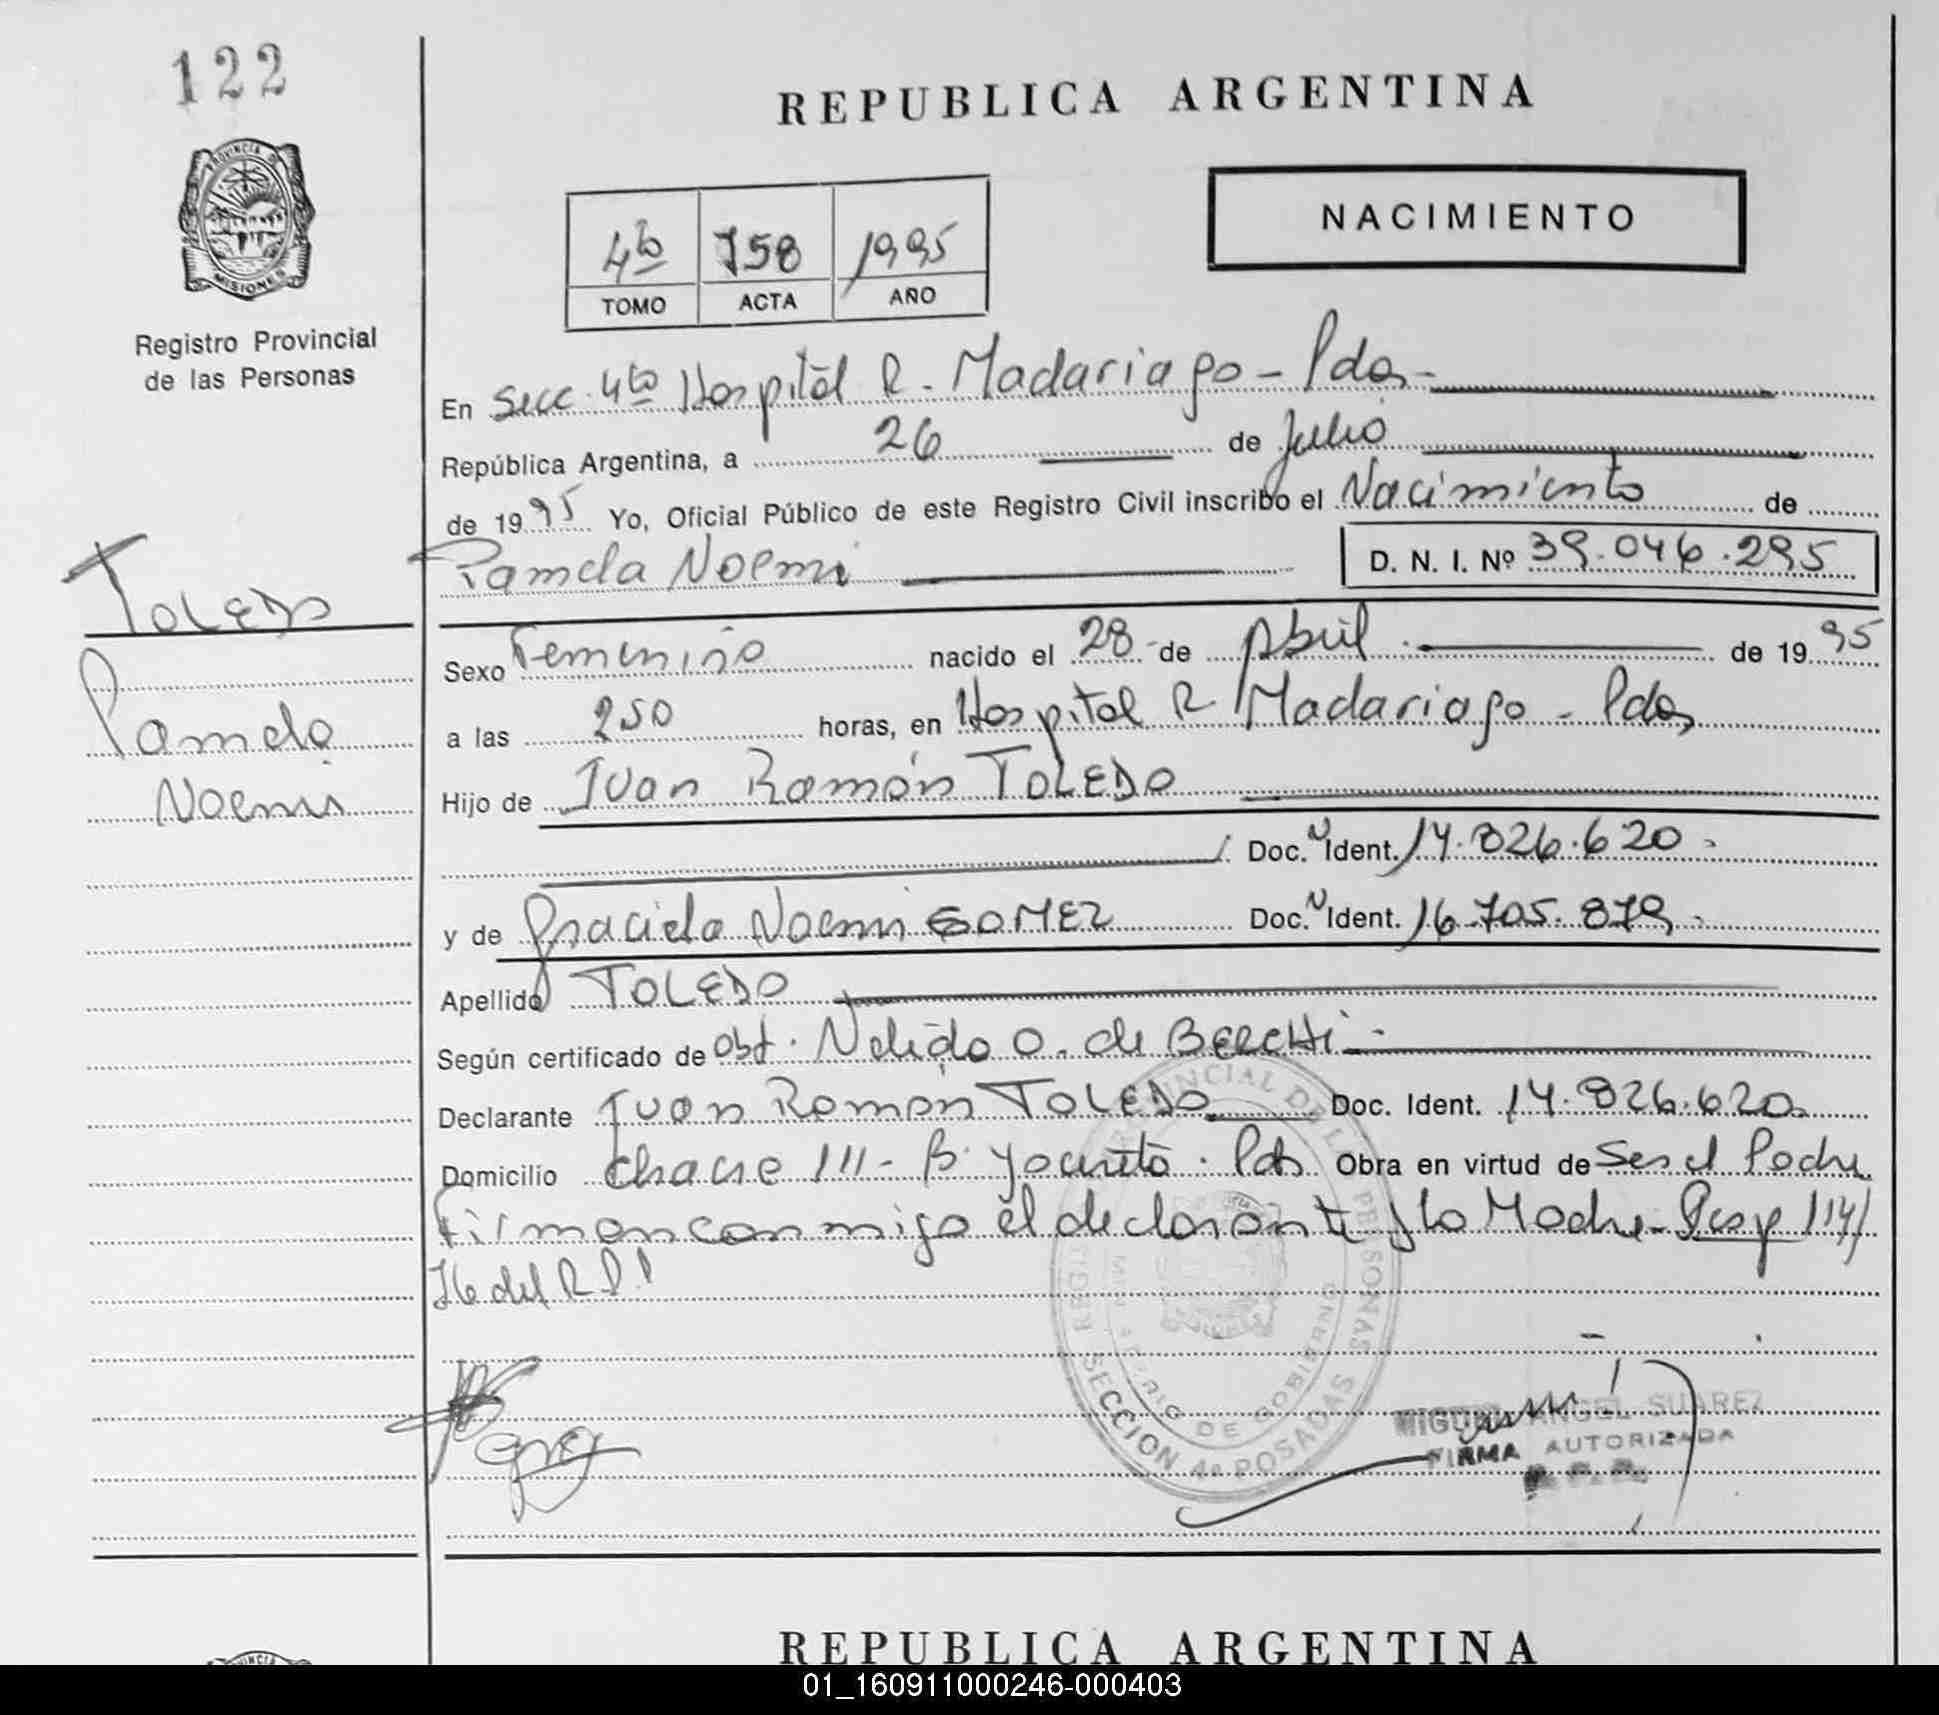 122
REPUBLICA ARGENTINA
PROVINCIA DE
MISIONES
Registro Provincial
de las Personas
NACIMIENTO
4to 758 1995
TOMO ACTA AÑO
En Secc. 4to Hospital R. Madariaga - Pdas -
República Argentina, a 26 de Julio
de 1995 Yo, Oficial Público de este Registro Civil inscribo el Nacimiento de
Pamela Noemi D. N. I. Nº 39.046.295
TOLEDO
Pamela
Noemi
Sexo Femenino nacido el 28 - de Abril . de 1995
a las 250 horas, en Hospital R Madariaga - Pdas
Hijo de Juan Ramón TOLEDO
Doc. N Ident. 14.826.620 -
y de Graciela Noemi GOMEZ Doc. N Ident. 16.705.879 -
Apellido TOLEDO
Según certificado de obst. Nelida O. de BERCHI -
Declarante Juan Ramon TOLEDO Doc. Ident. 14.826.620
Domicilio Chacre 111 - B. Yacireta . Pdas Obra en virtud de Ser el Padre
Firman conmigo el declarante y la Madre - 114/
76 del R.P.P
REGISTRO PROVINCIAL DE LAS PERSONAS
MINISTERIO DE GOBIERNO
SECCION 4ª POSADAS
MIGUEL ANGEL SUAREZ
FIRMA AUTORIZADA
REPUBLICA ARGENTINA
01_160911000246-000403